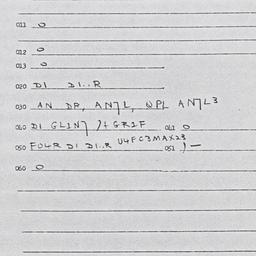 011 0
012 0
013 0
020 DI DI..R
030 AN DR, AN7L, WPL AN7L3
040 DI GLIN7 )+ GRIF 041 0
050 FOUR DI DI..R U4FC3MAX23 051 )-
060 0